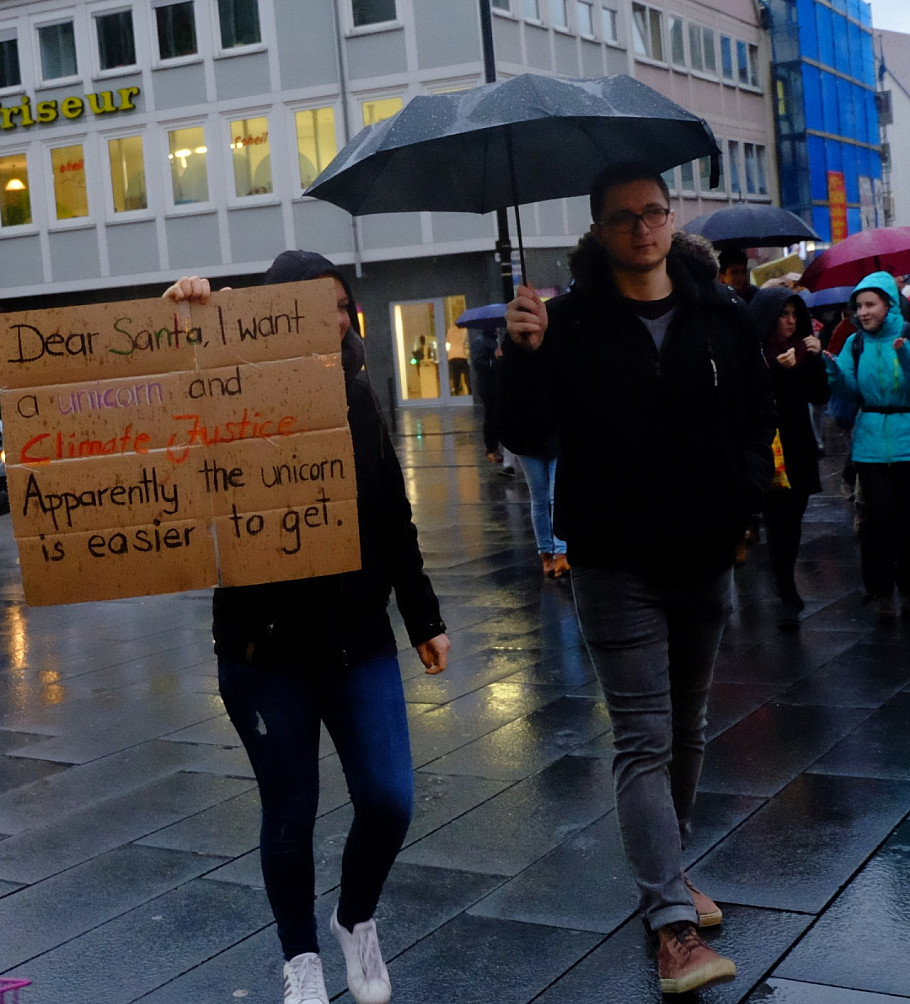 riseur
Dear Santa, I want
a unicorn and
Climate Justice
Apparently the unicorn
is easier to get.